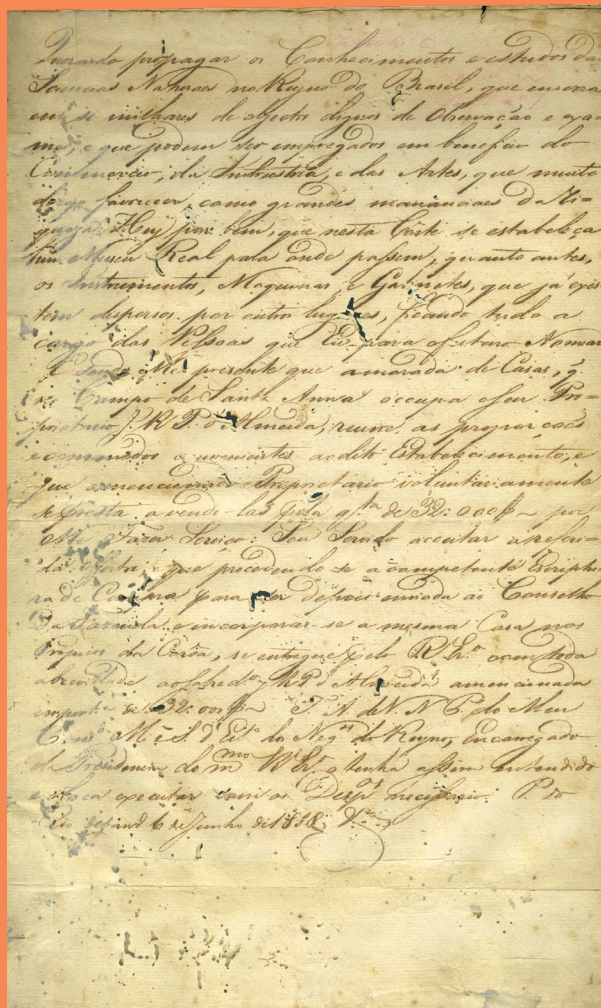 Querendo propagar os Conhecimentos e estudos das
Sciencias Naturaes no Reyno do Brasil, que encerra
em si milhares de objectos dignos de Observação e exa-
me, e que podem ser empregados em beneficio do
Commercio, da Industria, e das Artes, que muito
dezejo favorecer, como grandes mananciaes da Ri-
queza: Hey por bem, que nesta Corte se estabeleça
hum Museu Real para onde passem, quanto antes,
os Instrumentos, Maquinas, e Gabinetes, que já exis-
tem dispersos por outros lugares, ficando tudo a
cargo das Pessoas que Eu para o futuro Nomear
E Sendo-Me presente que a morada de Casas, q.
no Campo de Santa Anna occupa o seu Pro-
prietario J. R. P. d'Almeida, reune as proporções
e commodos convenientes ao dito Estabelecimento, e
que o mencionado Proprietario voluntariamente
se presta a vende-las pela q.ta de 32:000$ por
Me Fazer Serviço: Sou Servido acceitar a referi-
da offerta, e que procedendo-se a competente Escriptu-
ra de Compra para ser depois enviada ao Conselho
da Fazenda, e incorporar-se a mesma Casa nos
Proprios da Coroa, se entregue pelo R. Er.o com toda
a brevidade ao sobred.o J. R. P. Almeida a mencionada
import.a de 32:000$ T. A. de V. N. P. do Meu
Cons.o M. e S. d'Est.o do Neg.os do Reyno, Encarregado
da Presidencia do m.mo R. Er.o o tenha assim entendido
e faça executar com os Desp.os necessarios. P. do
Rio de Jan.o 6 de Junho de 1818